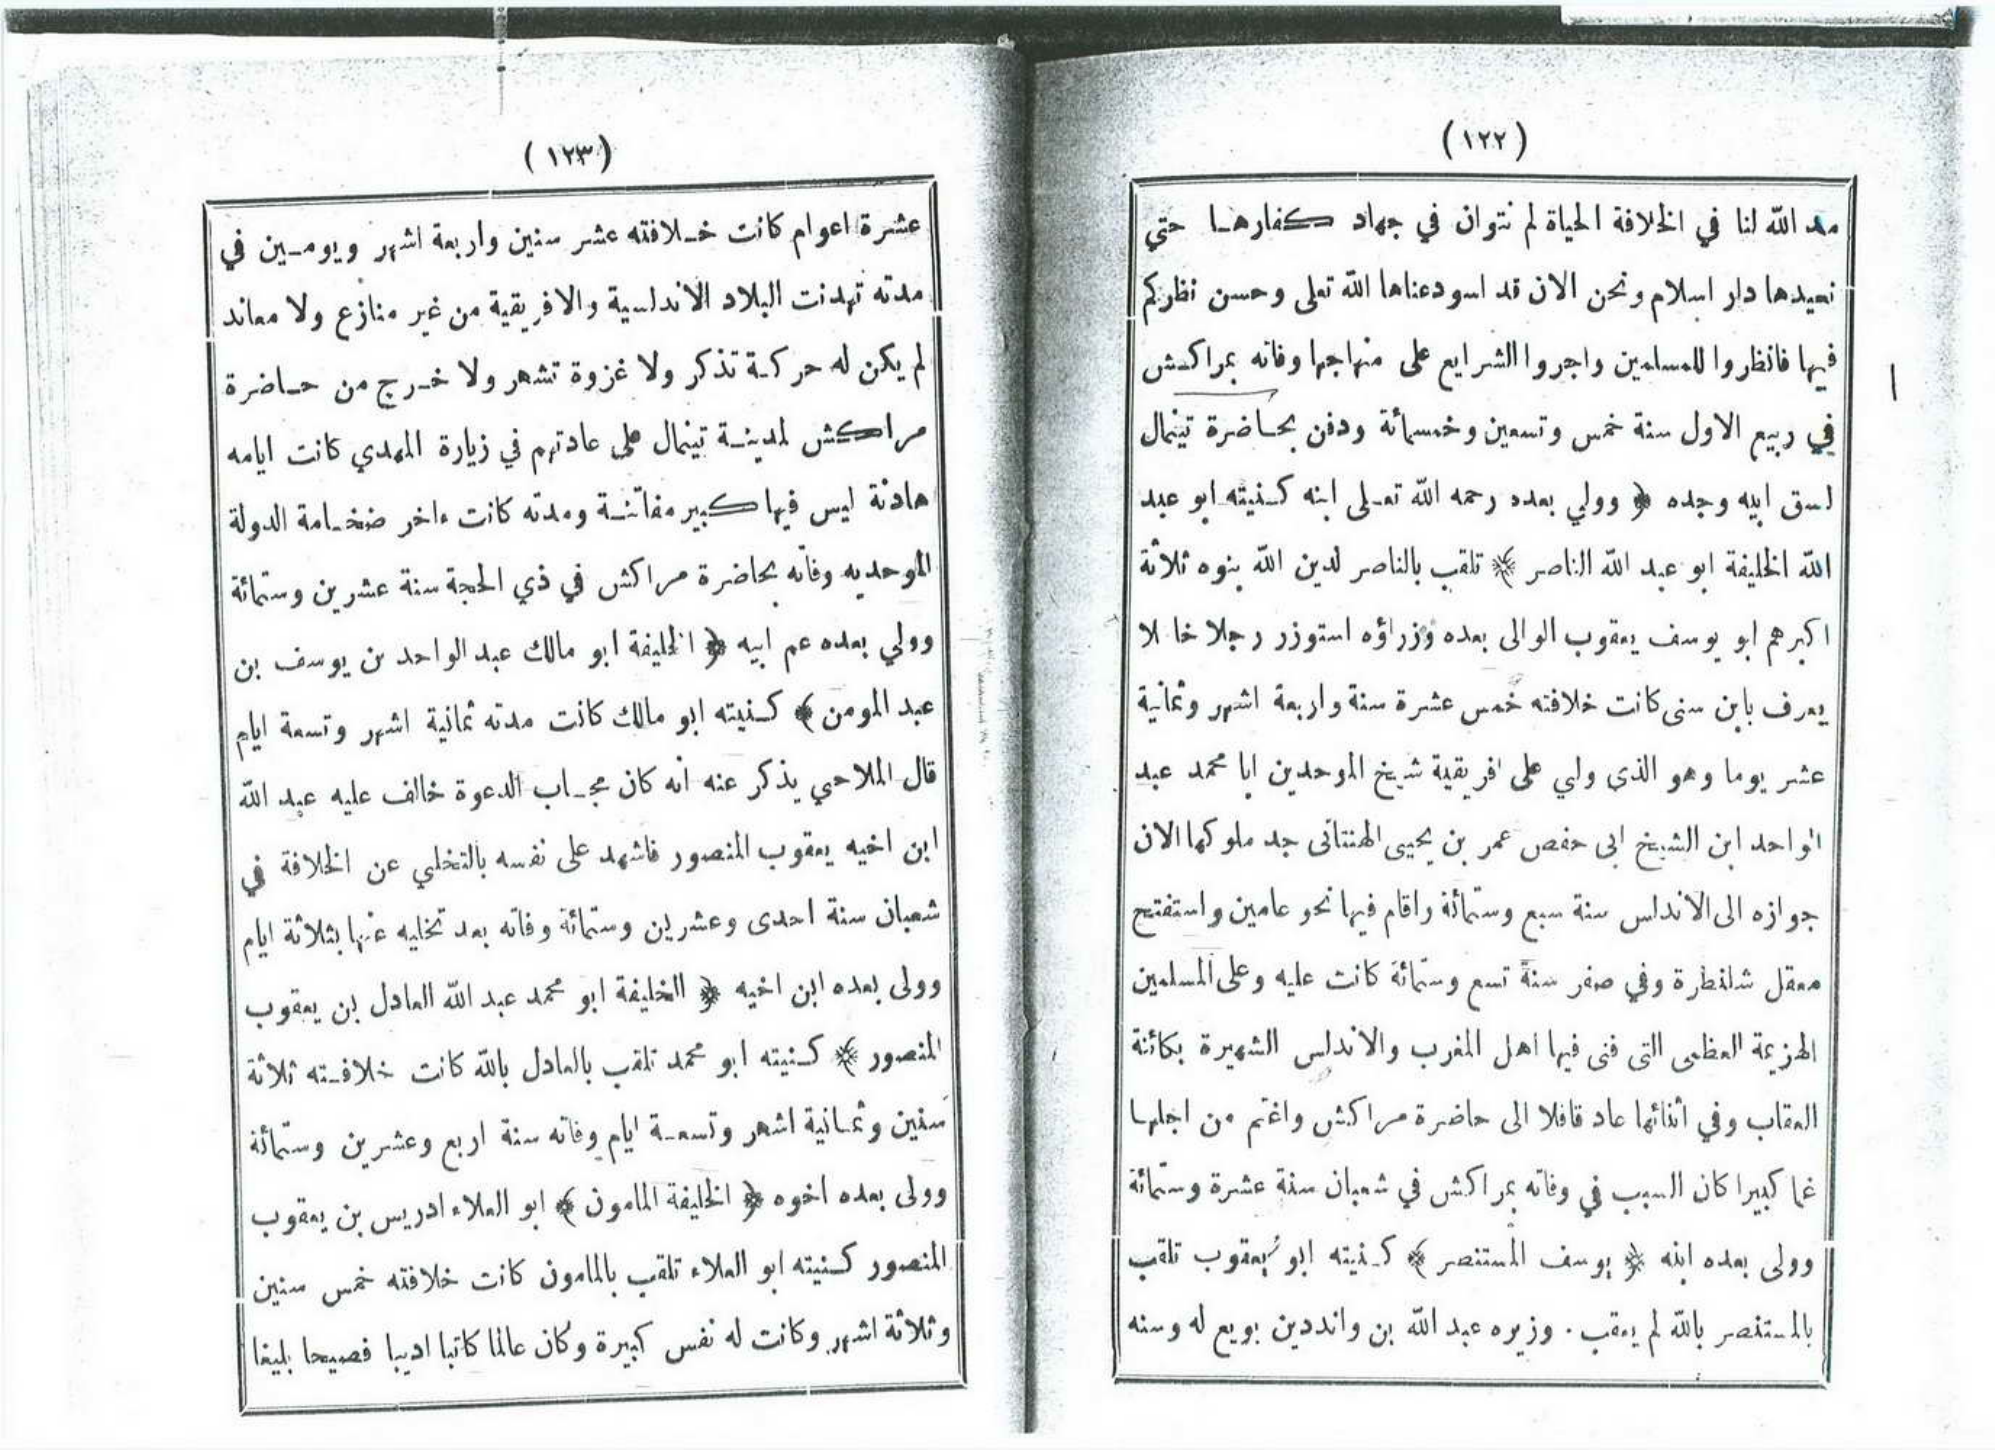 (١٢٢)
مد الله لنا في الخلافة الحياة لم نتوان في جهاد كفارها حتي
نعيدها دار اسلام ونحن الان قد اسودعناها الله تعلى وحسن نظركم
فيها فانظروا للمسلمين واجروا الشرايع على منهاجها وفاته بمراكش
في ربيع الاول سنة خمس وتسعين وخمسمائة ودفن بحاضرة تينمال
لسق ابيه وجده ﴿ وولي بعده رحمه الله تعلى ابنه كنيته ابو عبد
الله الخليفة ابو عبد الله الناصر ﴾ تلقب بالناصر لدين الله بنوه ثلاثة
اكبرهم ابو يوسف يعقوب الوالى بعده وزراؤه استوزر رجلا خا لا
يعرف بابن سنى كانت خلافته خمس عشرة سنة واربعة اشهر وثمانية
عشر يوما وهو الذى ولي على افريقية شيخ الموحدين ابا محمد عبد
الواحد ابن الشيخ ابى حفص عمر بن يحيى الهنتاتى جد ملوكها الان
جوازه الى الاندلس سنة سبع وستمائة واقام فيها نحو عامين واستفتح
معقل شلنطرة وفي صفر سنة تسع وستمائة كانت عليه وعلى المسلمين
الهزيمة العظمى التى فنى فيها اهل المغرب والاندلس الشهيرة بكائنة
العقاب وفي اثنائها عاد قافلا الى حاضرة مراكش واغتم من اجلها
غما كبيرا كان السبب في وفاته بمراكش في شعبان سنة عشرة وستمائة
وولى بعده ابنه ﴿ يوسف المستنصر ﴾ كنيته ابو يعقوب تلقب
بالمستنصر بالله لم يعقب . وزيره عبد الله بن وانددين بويع له وسنه
(١٢٣)
عشرة اعوام كانت خلافته عشر سنين واربعة اشهر ويومين في
مدته تهدنت البلاد الاندلسية والافريقية من غير منازع ولا معاند
لم يكن له حركة تذكر ولا غزوة تشهر ولا خرج من حاضرة
مراكش لمدينة تينمال على عادتهم في زيارة المهدي كانت ايامه
هادنة ليس فيها كبير مفاتنة ومدته كانت ءاخر ضخامة الدولة
الموحديه وفاته بحاضرة مراكش في ذي الحجة سنة عشرين وستمائة
وولي بعده عم ابيه ﴿ الخليفة ابو مالك عبد الواحد بن يوسف بن
عبد المومن ﴾ كنيته ابو مالك كانت مدته ثمانية اشهر وتسعة ايام
قال الملاحي يذكر عنه انه كان مجاب الدعوة خالف عليه عبد الله
ابن اخيه يعقوب المنصور فاشهد على نفسه بالتخلي عن الخلافة في
شعبان سنة احدى وعشرين وستمائة وفاته بعد تخليه عنها بثلاثة ايام
وولى بعده ابن اخيه ﴿ الخليفة ابو محمد عبد الله العادل بن يعقوب
المنصور ﴾ كنيته ابو محمد تلقب بالعادل بالله كانت خلافته ثلاثة
سنين وثمانية اشهر وتسعة ايام وفاته سنة اربع وعشرين وستمائة
وولى بعده اخوه ﴿ الخليفة المامون ﴾ ابو العلاء ادريس بن يعقوب
المنصور كنيته ابو العلاء تلقب بالمامون كانت خلافته خمس سنين
وثلاثة اشهر وكانت له نفس كبيرة وكان عالما كاتبا اديبا فصيحا بليغا